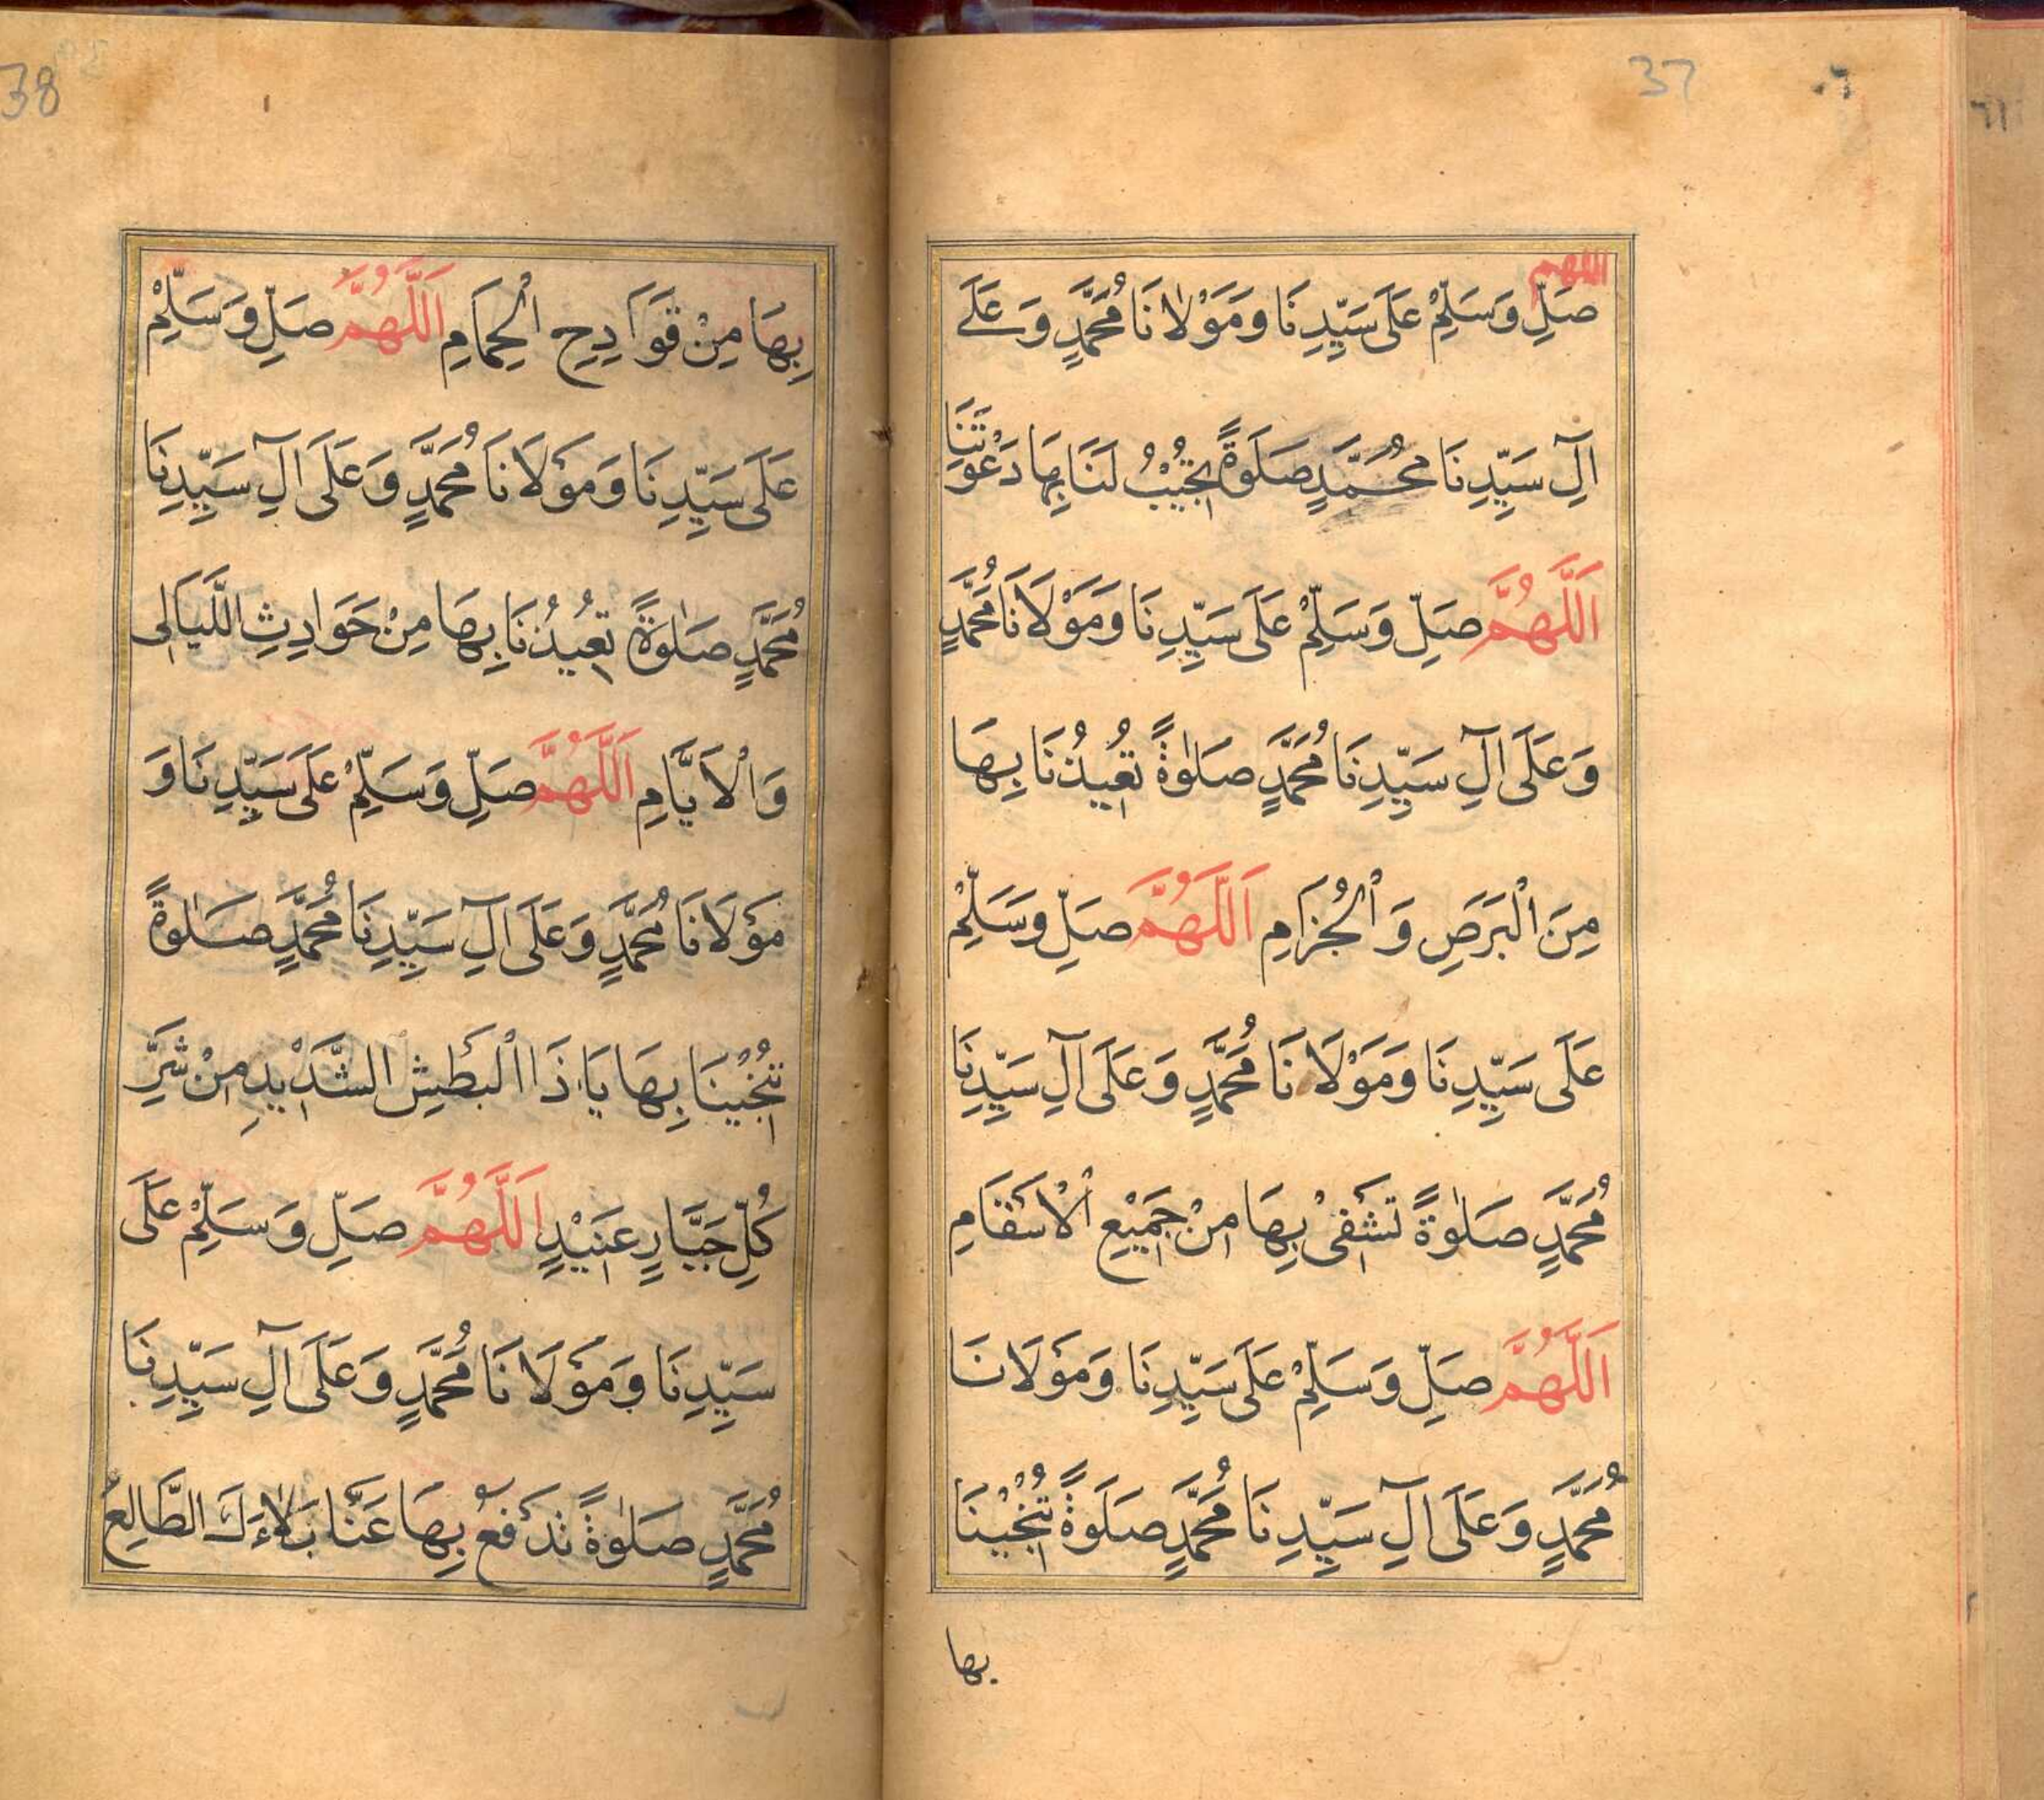 37
اللهم
صَلِّ وَسَلِّمْ عَلَى سَيِّدِنَا وَمَوْلَانَا مُحَمَّدٍ وَعَلَے
اٰلِ سَيِّدِنَا مُحَمَّدٍ صَلَوةً تُجِيْبُ لَنَا بِهَا دَعْوَتَنَا
اَللَّهُمَّ صَلِّ وَسَلِّمْ عَلَى سَيِّدِنَا وَمَوْلَانَا مُحَمَّدٍ
وَعَلَى اٰلِ سَيِّدِنَا مُحَمَّدٍ صَلٰوةً تُعِيْذُنَا بِهَا
مِنَ الْبَرَصِ وَالْجُزَامِ اَللَّهُمَّ صَلِّ وَسَلِّمْ
عَلَى سَيِّدِنَا وَمَوْلَانَا مُحَمَّدٍ وَعَلَى اٰلِ سَيِّدِنَا
مُحَمَّدٍ صَلٰوةً تَشْفِىْ بِهَا مِنْ جَمِيْعِ الْاَسْقَامِ
اَللَّهُمَّ صَلِّ وَسَلِّمْ عَلَى سَيِّدِنَا وَمَوْلَانَا
مُحَمَّدٍ وَعَلَى اٰلِ سَيِّدِنَا مُحَمَّدٍ صَلَوةً تُنْجِيْنَا
بها
38
بِهَا مِنْ قَوَادِحِ الْحِمَامِ اَللَّهُمَّ صَلِّ وَسَلِّمْ
عَلَى سَيِّدِنَا وَمَوْلَانَا مُحَمَّدٍ وَعَلَى اٰلِ سَيِّدِنَا
مُحَمَّدٍ صَلٰوةً تُعِيْذُنَا بِهَا مِنْ حَوَادِثِ اللَّيَالِى
وَالْاَيَّامِ اَللَّهُمَّ صَلِّ وَسَلِّمْ عَلَى سَيِّدِنَا وَ
مَوْلَانَا مُحَمَّدٍ وَعَلَى اٰلِ سَيِّدِنَا مُحَمَّدٍ صَلٰوةً
تُنْجِيْنَا بِهَا يَا ذَا الْبَطْشِ الشَّدِيْدِ مِنْ شَرِّ
كُلِّ جَبَّارٍ عَنِيْدٍ اَللَّهُمَّ صَلِّ وَسَلِّمْ عَلَى
سَيِّدِنَا وَمَوْلَانَا مُحَمَّدٍ وَعَلَى اٰلِ سَيِّدِنَا
مُحَمَّدٍ صَلٰوةً تَدْفَعُ بِهَا عَنَّا بَلَاءَكَ الطَّالِعَ